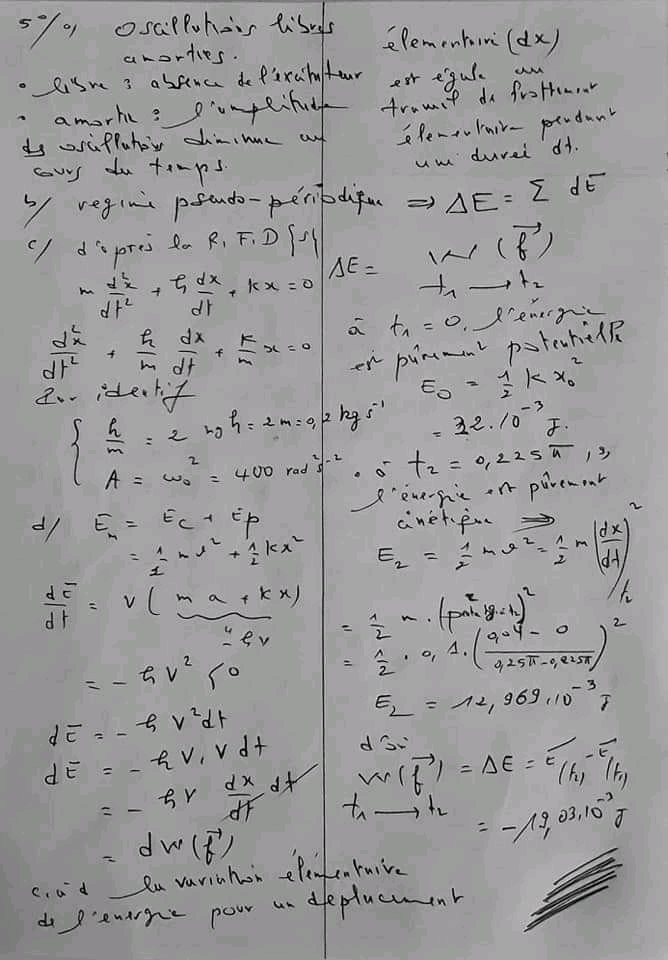 5°/ a, oscillations libres
amorties.
• libre : absence de l'excitateur
• amortie : l'amplitude
des oscillations diminue au
cours du temps.
b/ regime pseudo-périodique
c/ d'après la R.F.D {s}
m d²x/dt² + h dx/dt + kx = 0
d²x/dt² + h/m dx/dt + k/m x = 0
Par identif
{ h/m = 2 h = 2m = 0,2 kg s⁻¹
A = ω₀² = 400 rad² s⁻²
d/ Em = Ec + Ep
= 1/2 m v² + 1/2 kx²
dE/dt = v ( m a + kx )
- hv
= - h v² < 0
dE = - h v² dt
dE = - h v . v dt
= - h v dx/dt dt
= dW(f⃗)
c.à.d la variation élémentaire
de l'énergie pour un déplacement
élémentaire (dx)
est égale au
travail de frottement
élémentaire pendant
une durée dt.
⇒ ΔE = Σ dE
ΔE = W (f⃗)
t₁ → t₂
à t₁ = 0, l'énergie
est pûrement potentielle
E₀ = 1/2 k x₀²
= 32.10⁻³ J.
• à t₂ = 0,225 π , s,
l'énergie est pûrement
cinétique ⇒
E₂ = 1/2 m v² = 1/2 m (dx/dt)² /t₂
= 1/2 m . (pente tgte t₂)²
= 1/2 . 0,1 . (0,04 - 0 / 0,25π - 0,225π)²
E₂ = 12,969.10⁻³ J
d'où
W(f⃗) = ΔE = E/(t₂) - E/(t₁)
t₁ → t₂
= - 19,03.10⁻³ J